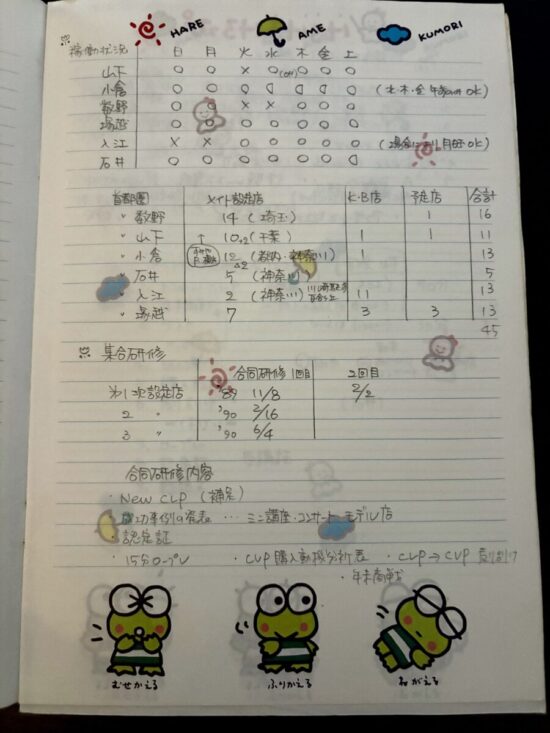 HARE AME KUMORI
※ 稼働状況 日 月 火 水 木 金 土
山下 ○ ○ × ○(off) ○ ○ ○
小倉 ○ ○ ○ ○
牧野 ○ ○ × × ○ ○ ○
塚越 ○ ○ ○ ○ ○ ○ ○
入江 × × ○ ○ ○ ○ ○ (場合により月日OK)
石井 ○ ○ ○ ○ ○ ○
首都圏 メイト設定店 K・B店 予定店 合計
〃 牧野 14 (埼玉) 1 16
〃 山下 ↑ 10+2 (千葉) 1 1 11
〃 小倉 12 (都内・神奈川) 1 13
〃 石井 5 (神奈川) 5
〃 入江 2 (神奈川) 11 13
〃 塚越 7 3 3 13
45
※ 集合研修
合同研修 1回目 2回目
第1次設定店 '89 11/8 2/2
2 〃 '90 2/16
3 〃 '90 6/4
合同研修内容
・NEW CLP (補足)
・成功事例の発表 … ミニ講座・コンサート モデル店
・認定証
・15分ロープレ ・CVP購入動機分析表 ・CLP→CVP
・年末商戦
むせかえる ふりかえる ねがえる